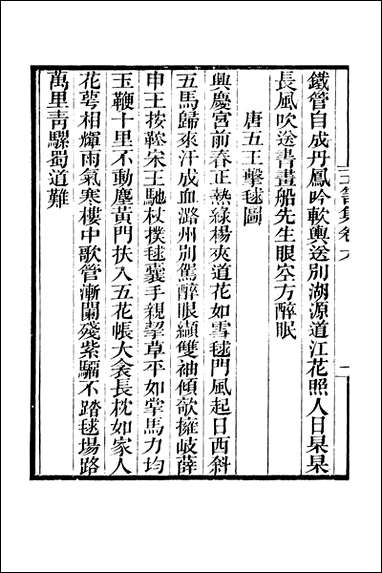 鐵管自成丹鳳吟軟輿送别湖源道江花照人日杲杲
長風吹送書畫船先生眼空方醉眠
唐五王擊毬圖
興慶宫前春正熱綠楊夾道花如雪毬門風起日西斜
五馬歸來汗成血潞州别駕醉眼纈雙袖傾欹擁岐薛
申王按鞚宋王馳杖撲毬囊手親挈草平如掌馬力均
玉鞭十里不動塵黄門扶入五花帳大衾長枕如家人
花萼相輝雨氣寒樓中歌管漸闌殘紫騮不踏毬場路
萬里青騾蜀道難